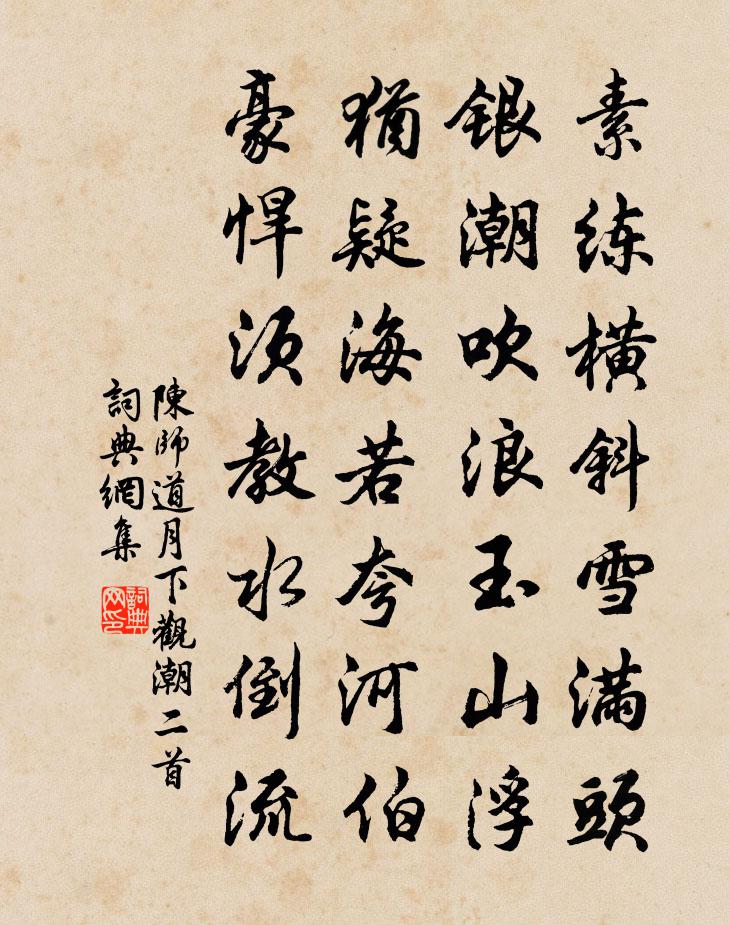 素練橫斜雪滿頭
銀潮吹浪玉山浮
猶疑海若夸河伯
豪悍須教水倒流
陳師道月下觀潮二首
詞典網集
詞典网印